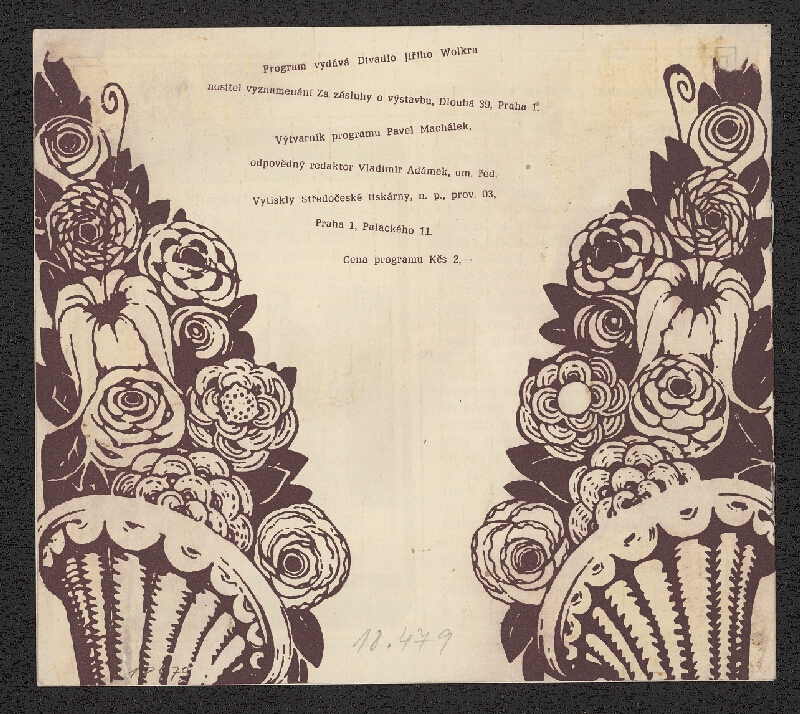 Program vydává Divadlo Jiřího Wolkra
nositel vyznamenání Za zásluhy o výstavbu, Dlouhá 39, Praha 1.
Výtvarník programu Pavel Machálek,
odpovědný redaktor Vladimír Adámek, um. řed.
Vytiskly Středočeské tiskárny, n. p., prov. 03,
Praha 1, Palackého 11.
Cena programu Kčs 2,—
18.479